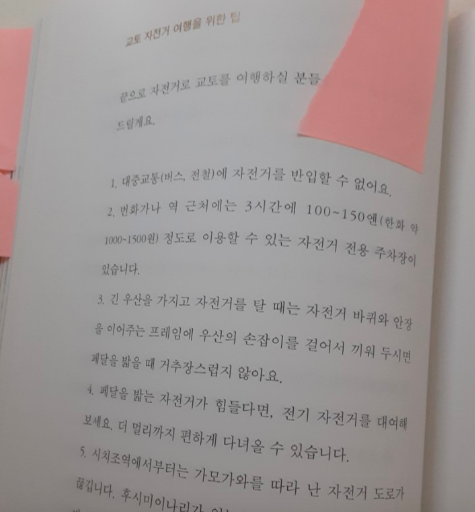 교토 자전거 여행을 위한 팁
끝으로 자전거로 교토를 여행하실 분들
드릴게요.
1. 대중교통(버스, 전철)에 자전거를 반입할 수 없어요.
2. 번화가나 역 근처에는 3시간에 100~150엔(한화 약
1000~1500원) 정도로 이용할 수 있는 자전거 전용 주차장이
있습니다.
3. 긴 우산을 가지고 자전거를 탈 때는 자전거 바퀴와 안장
을 이어주는 프레임에 우산의 손잡이를 걸어서 끼워 두시면
페달을 밟을 때 거추장스럽지 않아요.
4. 페달을 밟는 자전거가 힘들다면, 전기 자전거를 대여해
보세요. 더 멀리까지 편하게 다녀올 수 있습니다.
5. 시치조역에서부터는 가모가와를 따라 난 자전거 도로가
끊깁니다. 후시미이나리가